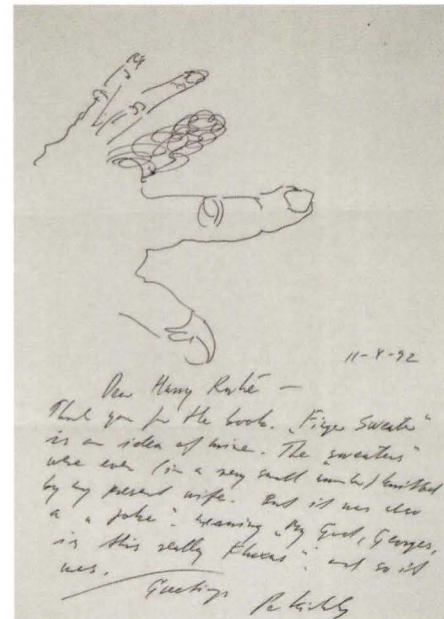 11-8-92
Dear Harry Ruhé —
Thank you for the book. „Finger Sweater"
is an idea of mine. The „sweaters"
were even (in a very small number) knitted
by my present wife. But it was also
a „joke": meaning „My God, Georges,
is this really Fluxus": and so it
was.
Greetings